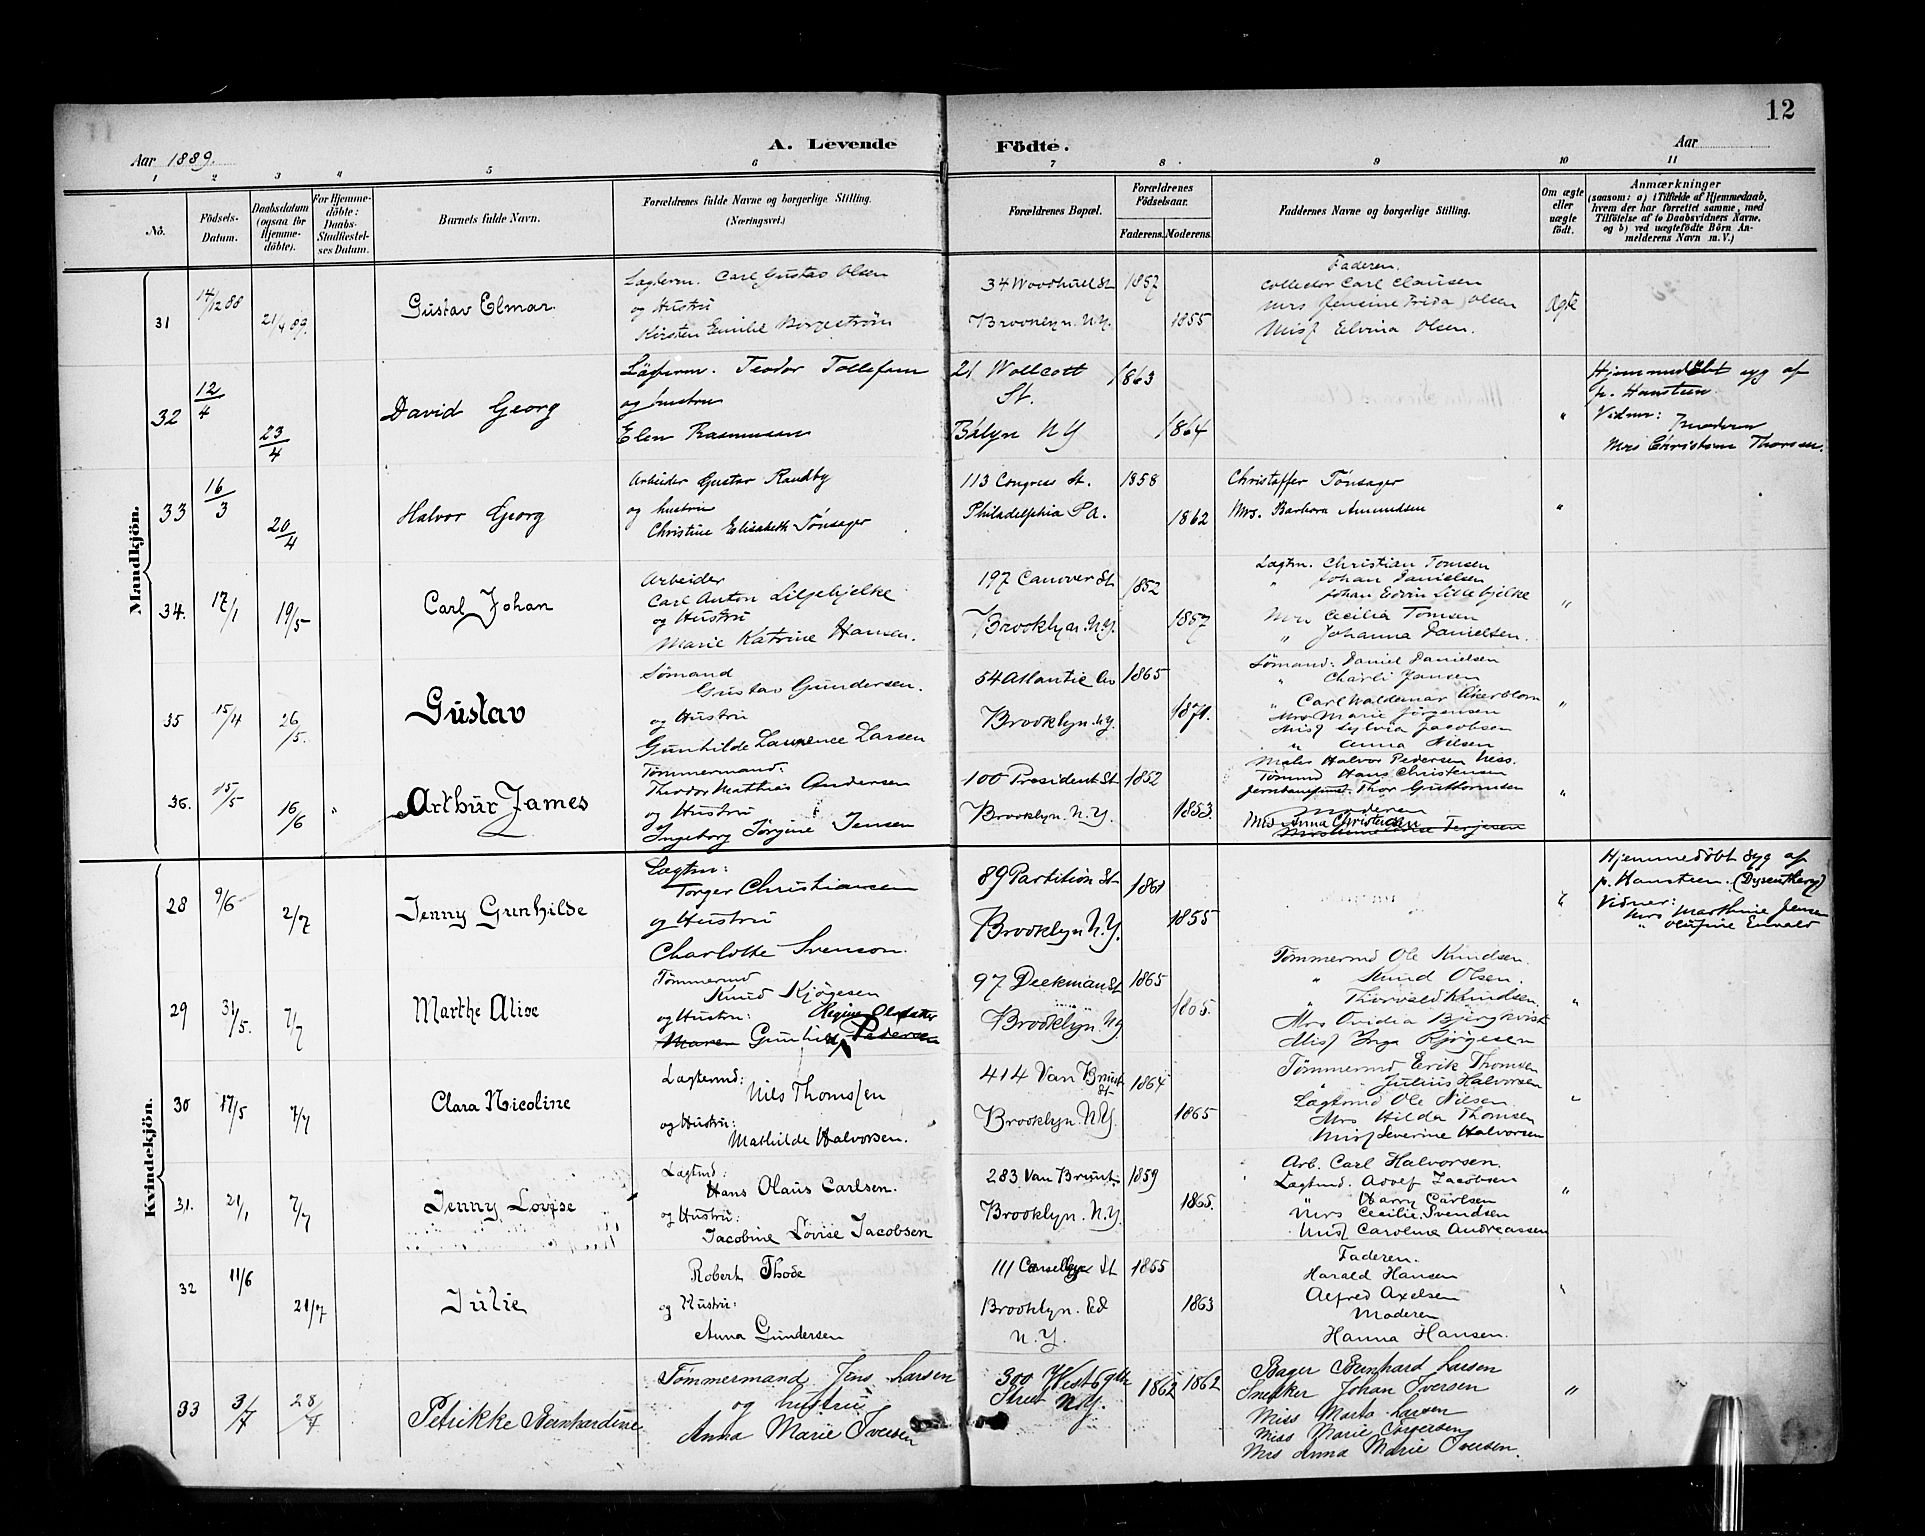 12
Aar 1889.
A. Levende
Födte.
Aar
1 2 3 4 5 6 7 8 9 10 11
No.
Födsels-Datum.
Daabsdatum (ogsaa for Hjemme-döbte).
For Hjemme-döbte: Daabs-Stadfæstel-ses Datum.
Barnets fulde Navn.
Forældrenes fulde Navne og borgerlige Stilling.
(Næringsvei.)
Forældrenes Bopæl.
Forældrenes Födselsaar.
Faderens. Moderens.
Faddernes Navne og borgerlige Stilling.
Om ægte eller uægte födt.
Anmærkninger
(saasom: a) i Tilfælde af Hjemmedaab, hvem der har forrettet samme, med Tilföielse af to Daabsvidners Navne, og b) ved uægtefödte Börn An-melderens Navn m. V.)
Mandkjön.
31
14/12 88
21/4 89.
Gustav Elmar
Carl Gustav Olsen
og Hustru
Kirsten Emilie Borgestrøm
34 Woodhull St
Brooklyn. N.Y.
1857
1855
Faderen.
Collector Carl Clausen
Mrs Jensine Frida Olsen
Miss Elvina Olsen.
Ægte
32
12/4
23/4
David Georg
Teodor Tollefsen
og hustru
Elen Rasmussen
21 Wollcott
St.
Bklyn N Y
1863
1864
"
Hjemmedøbt syg af
p. Hansteen.
Vidner: Moderen
Mrs Christian Thorsen.
33
16/3
20/4
Halvor Georg
Arbeider Gustav Randby
og hustru
Christine Elisabeth Tønsager
113 Congress St.
Philadelphia Pa.
1858
1862
Christoffer Tønsager
Mrs. Barbara Amundsen
"
34.
17/1
19/5
Carl Johan
Arbeider
Carl Anton Liljehjelke
og Hustru
Marie Katrine Hansen.
197 Canover St
Brooklyn. N.Y.
1852
1857
Lagtm. Christian Tomsen
" Johan Danielsen
Johan Edvin Lillebjelke
Mrs Cecilia Tomsen
" Johanna Danielsen.
"
35
15/4
26/5.
Gustav
Sømand
Gustav Gundersen.
og Hustru
Gunhilde Laurence Larsen
54 Atlantic Av
Brooklyn. N.Y.
1865
1871.
Sømand: Daniel Danielsen
" Charli Jansen
" Carl Waldemar Åkerblom
Mrs Marie Jörgensen
Miss Sylvia Jacobsen
" Anna Nilsen
"
36.
15/5
16/6
"
Arthur James
Tømmermand:
Theodor Mathias Andersen
og Hustru
Ingeborg Jørgine Jensen
100 President St
Brooklyn. N.Y.
1852
1853.
Maler Halvor Pedersen Ness.
Tømmd Hans Christensen
Thor Guttormsen
Moderen
Mrs Anna Christensen
Terjesen
"
Kvindekjön.
28
9/6
2/7
Jenny Gunhilde
Lagtm:
Torger Christiansen
og Hustru
Charlotte Svenson.
89 Partition St
Brooklyn N.Y.
1861
1855
"
Hjemmedøbt syg af
p. Hansteen. (Dysenthery)
Vidner:
Mrs Marthine Jensen
" Olufine Envald
29
31/5.
7/7
Marthe Alise
Tømmermd
Knud Kjøgesen
og Hustru: Regine Olsdatter
Maren Gunhild Pedersen
97 Deekman St
Brooklyn. Ny
1865
1865.
Tømmermd Ole Knudsen.
" Knud Olsen
" Thorvald Knudsen.
Mrs Ovidia Bjørgkvist
Miss Inga Kjøgesen
"
30
17/5
7/7
Clara Nicoline
Lagtermd:
Nils Thomssen
og Hustru:
Mathilde Halvorsen.
414 Van Brunt
St
Brooklyn. N.Y.
1864
1865
Tømmermd Erik Thomsen
" Julius Halvorsen
Lagtermd Ole Nilsen
Mrs Hilda Thomsen
Miss Severine Halvorsen
"
31.
21/1
7/7
Jenny Lovise
Lagtmd:
Hans Olaus Carlsen.
og Hustru:
Jacobine Lovise Jacobsen
283 Van Brunt
Brooklyn. N.Y.
1859
1865.
Arb. Carl Halvorsen.
Lagtmd. Adolf Jacobsen
" Harry Carlsen
Mrs Cecilie Svendsen
Miss Caroline Andreassen
"
32
11/6
21/7
Julie
Robert Thode
og Hustru:
Anna Gundersen
111 St
Brooklyn. Ed
N.Y.
1855
1863
Faderen.
Harald Hansen
Alfred Axelsen
Moderen
Hanna Hansen.
"
33
3/7
28/7
Petrikke Bernhardine
Tømmermand Jens Larsen
og hustru
Anna Marie Iversen
300 West 69th
Street N.Y.
1862 1862
Bager Bernhard Larsen
Snekker Johan Iversen
Miss Marta Larsen
Miss Marie
Mrs Anna Marie Iversen.
"